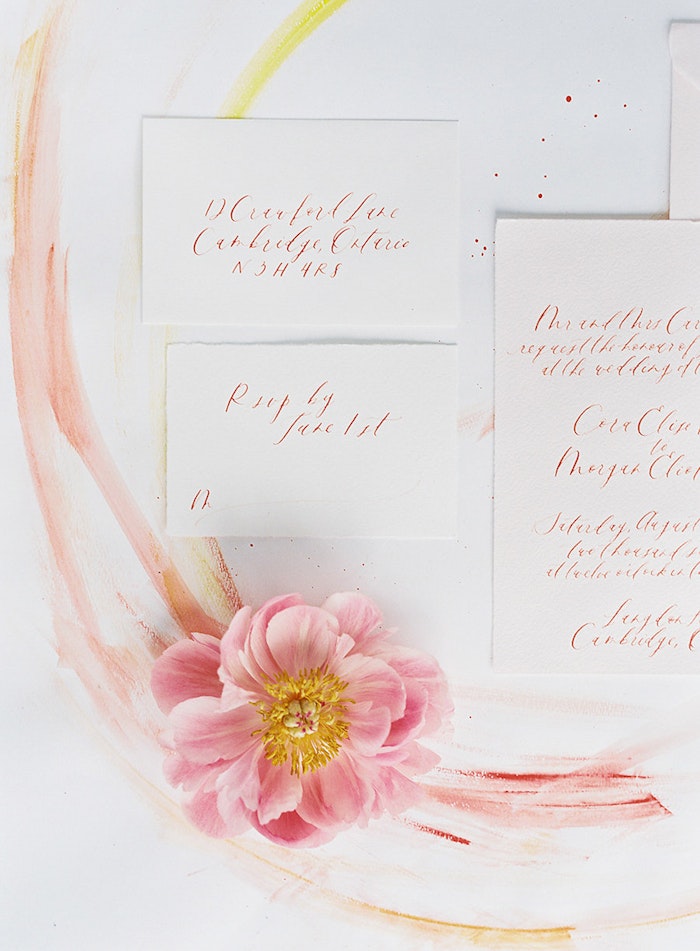 12 Crawford Lane
Cambridge, Ontario
N3H 4R8
Rsvp by
June 1st
M
Mr and Mrs
request the honour of
at the wedding of
Cora Elise
to
Morgan
Saturday, August
two thousand
at twelve o'clock in
Langdon
Cambridge,